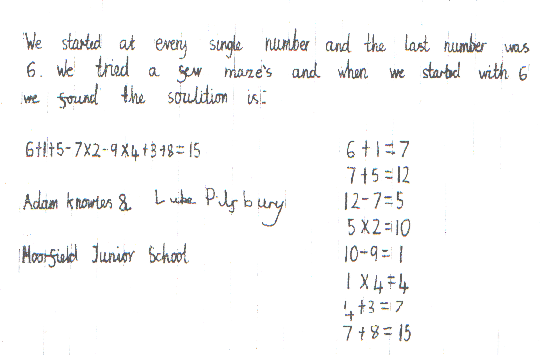 We started at every single number and the last number was
6. We tried a few maze's and when we started with 6
we found the soulition is:
6+1+5-7X2-9X4+3+8=15
6+1=7
7+5=12
Adam Knowles & Luke Pilsbury
12-7=5
5X2=10
Moorfield Junior School
10-9=1
1X4=4
4+3=7
7+8=15